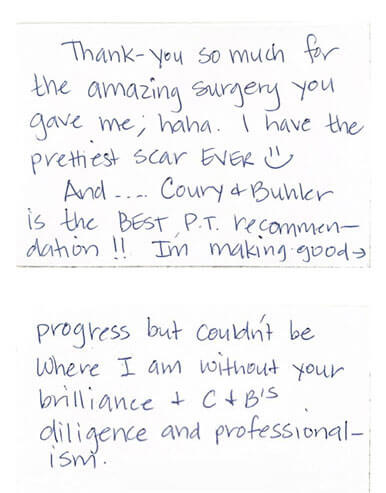 Thank-you so much for
the amazing surgery you
gave me; haha. I have the
prettiest scar EVER
And .... Coury & Buhler
is the BEST P.T. recommen-
dation!! Im making good→
progress but couldn't be
where I am without your
brilliance + C + B's
diligence and professional-
ism.